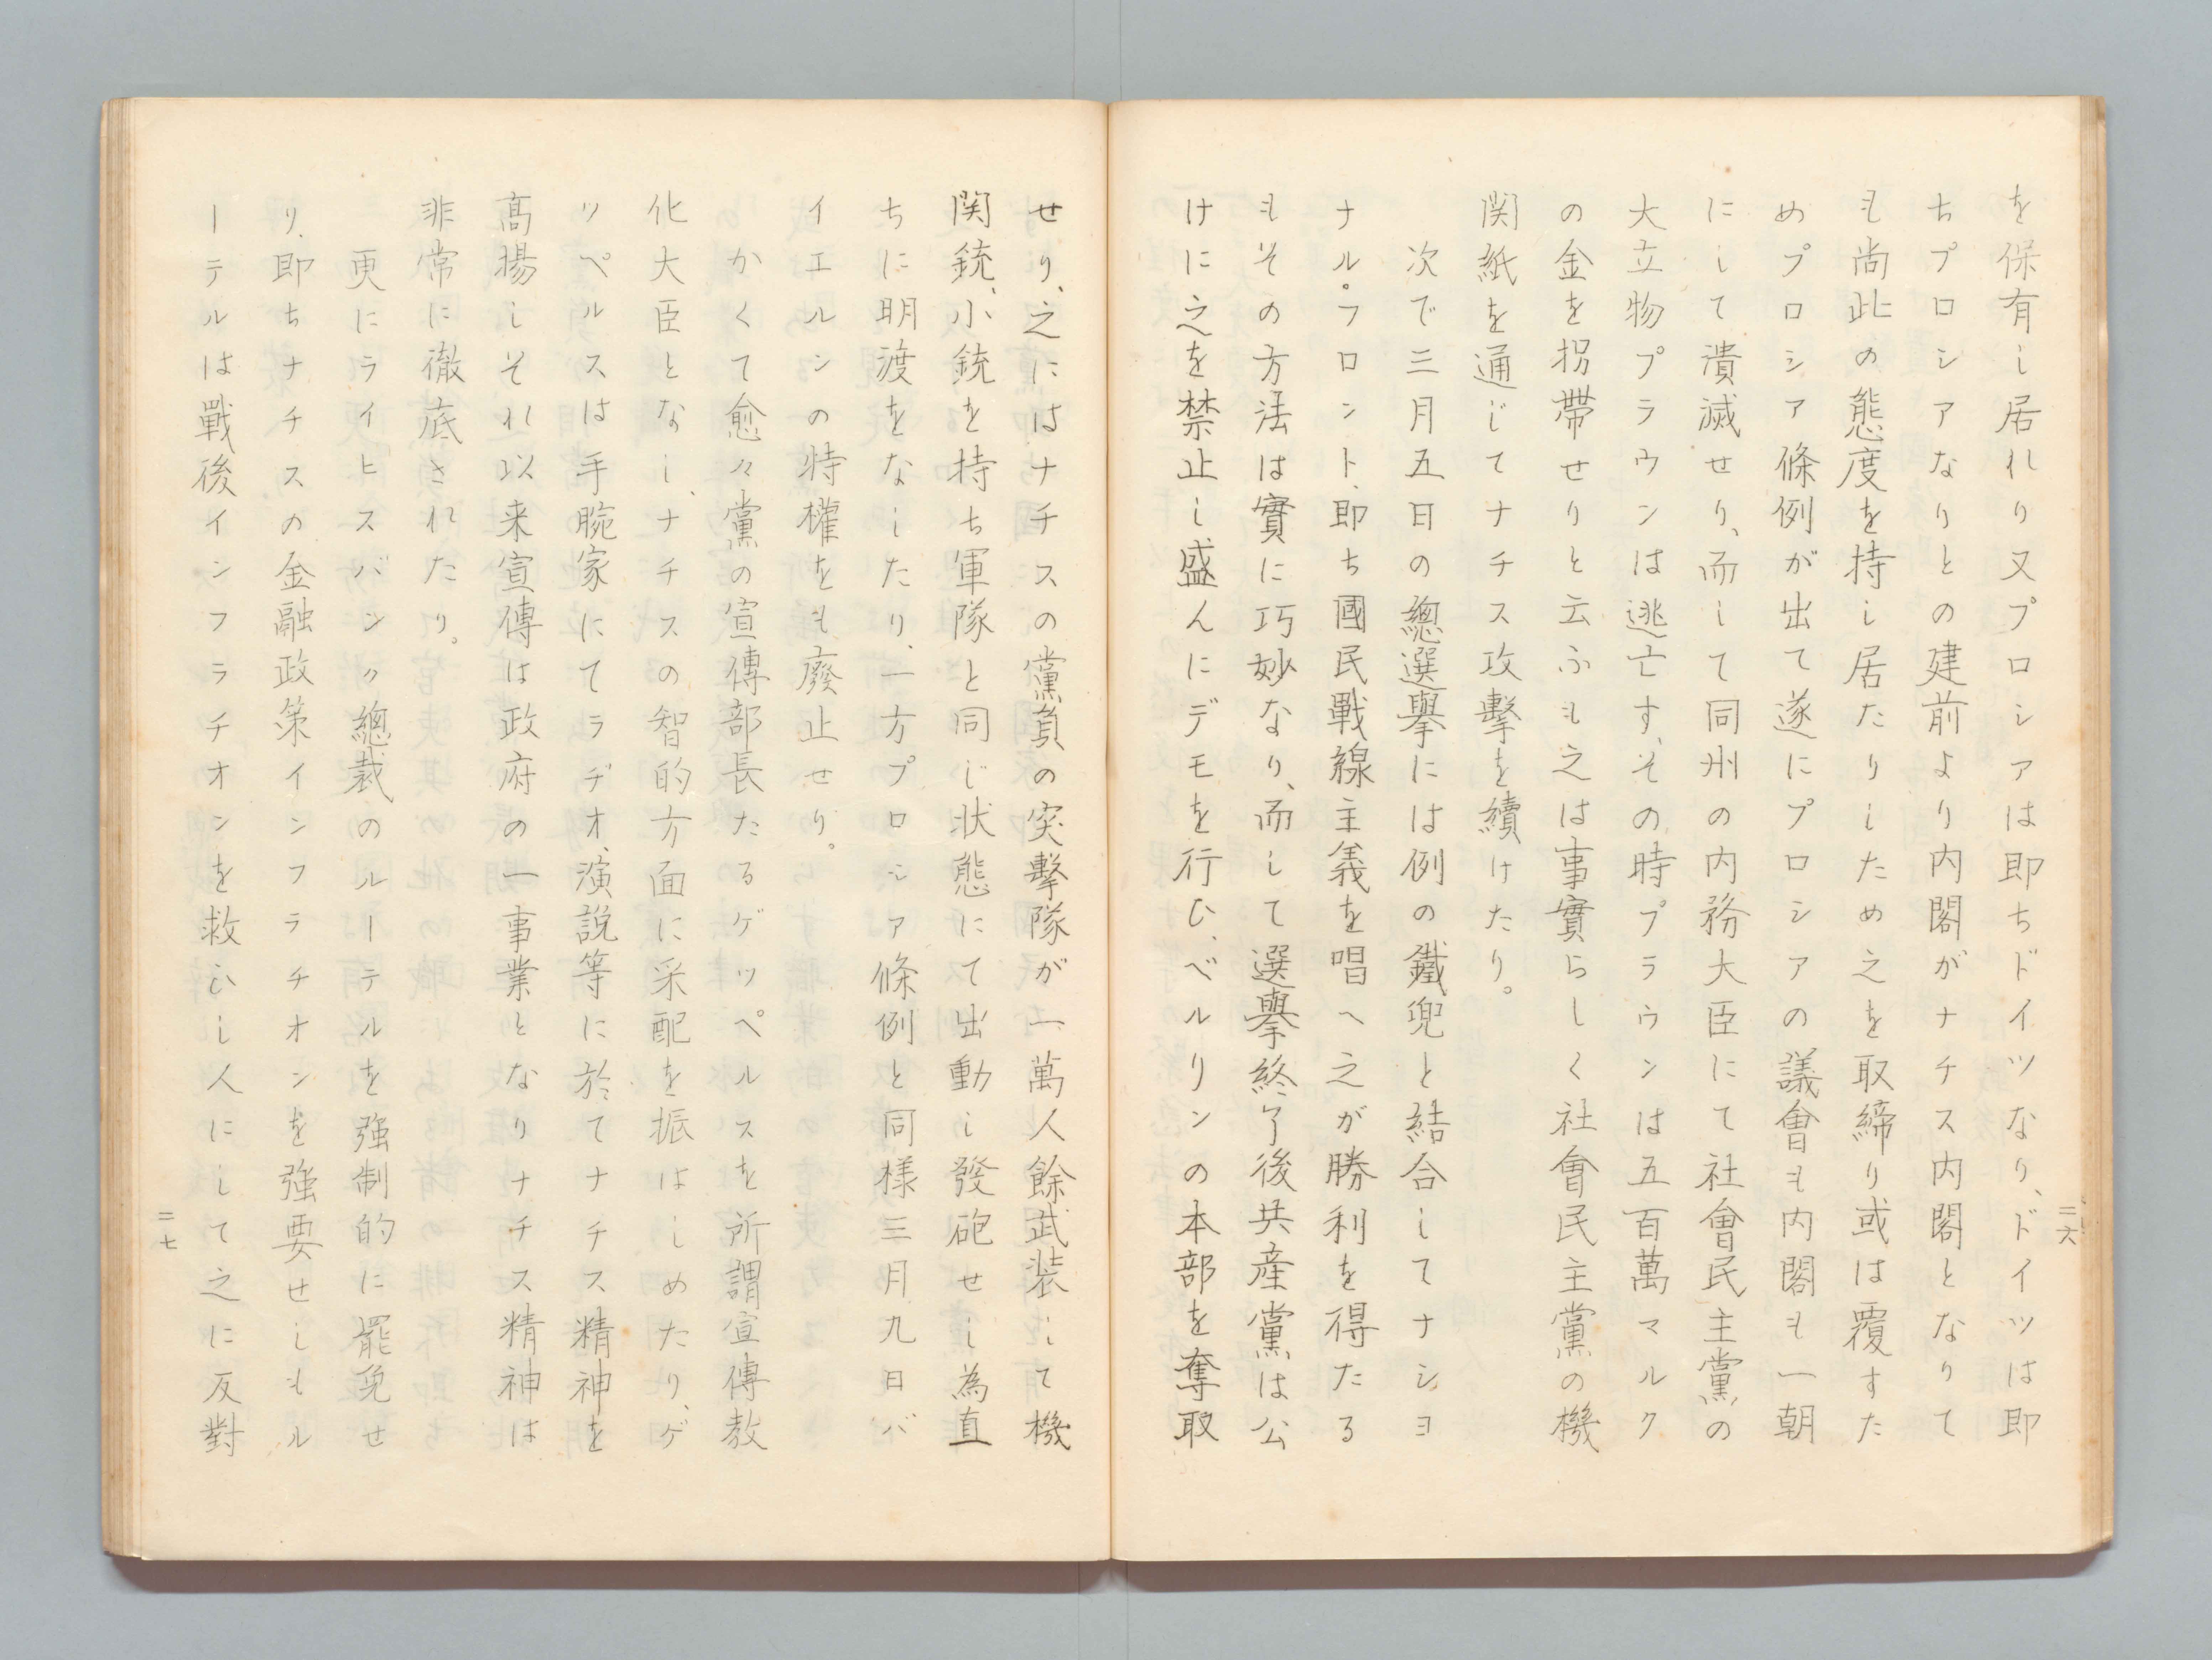 を保有し居れり又プロシアは即ちドイツなり、ドイツは即
ちプロシアなりとの建前より内閣がナチス内閣となりて
も尚此の態度を持し居たりしため之を取締り或は覆すた
めプロシア條例が出て遂にプロシアの議會も内閣も一朝
にして潰滅せり、而して同州の内務大臣にて社會民主黨の
大立物ブラウンは逃亡す、その時ブラウンは五百萬マルク
の金を拐帶せりと云ふも之は事實らしく社會民主黨の機
関紙を通じてナチス攻擊を續けたり。
次で三月五日の總選擧には例の鐵兜と結合してナシヨ
ナル。フロント、即ち國民戰線主義を唱へ之が勝利を得たる
もその方法は實に巧妙なり、而して選擧終了後共産黨は公
けに之を禁止し、盛んにデモを行ひ、ベルリンの本部を奪取
二六
せり、之にはナチスの黨員の突擊隊が一萬人餘武装して機
関銃、小銃を持ち軍隊と同じ状態にて出動し發砲せし為直
ちに明渡をなしたり、一方プロシア條例と同様三月九日バ
イエルンの特權をも廢止せり。
かくて愈々黨の宣傳部長たるゲツペルスを所謂宣傳教
化大臣となし、ナチスの智的方面に采配を振はしめたり、ゲ
ツペルスは手腕家にてラヂオ、演説等に於てナチス精神を
高揚しそれ以来宣傳は政府の一事業となりナチス精神は
非常に徹底されたり。
更にライヒスバンク總裁のルーテルを強制的に罷免せ
り、即ちナチスの金融政策インフラチオンを強要せしもル
ーテルは戰後インフラチオンを救ひし人にして之に反對
二七